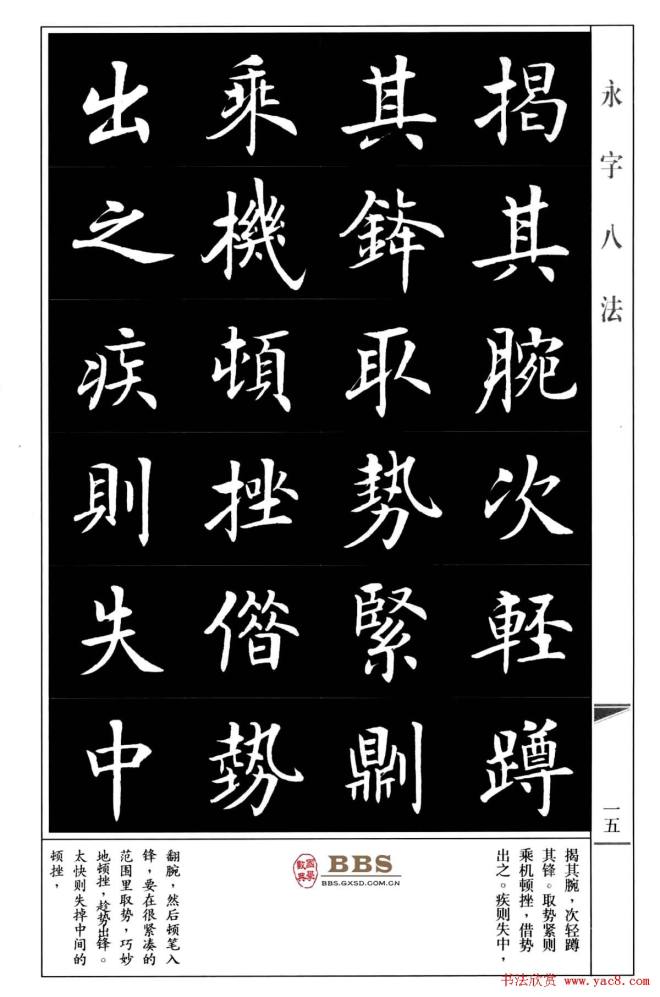 永字八法
一五
揭其腕次軽蹲
其鋒取勢緊則
乘機頓挫僭勢
出之疾則失中
揭其腕，次轻蹲
其锋。取势紧则
乘机顿挫，借势
出之。疾则失中，
BBS
BBS.GXSD.COM.CN
翻腕，然后顿笔入
锋，要在很紧凑的
范围里取势，巧妙
地顿挫，趁势出锋。
太快则失掉中间的
顿挫，
书法欣赏 www.yac8.com